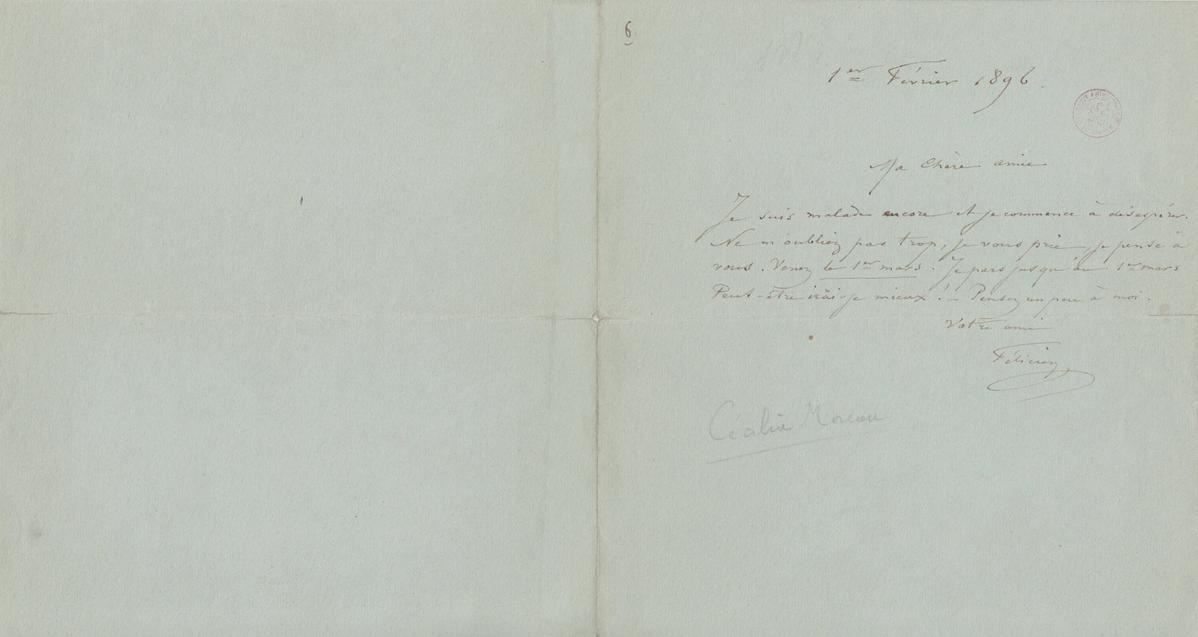 6
1er Février 1896.
Ma chère amie
Je suis malade encore et je commence à désespérer.
Ne m'oubliez pas trop, je vous prie, je pense à
vous. Venez le 1er mars. Je pars jusqu'au 1er mars
Peut-être irai-je mieux ! - Pensez un peu à moi.
Votre ami
Félicien
Moreau